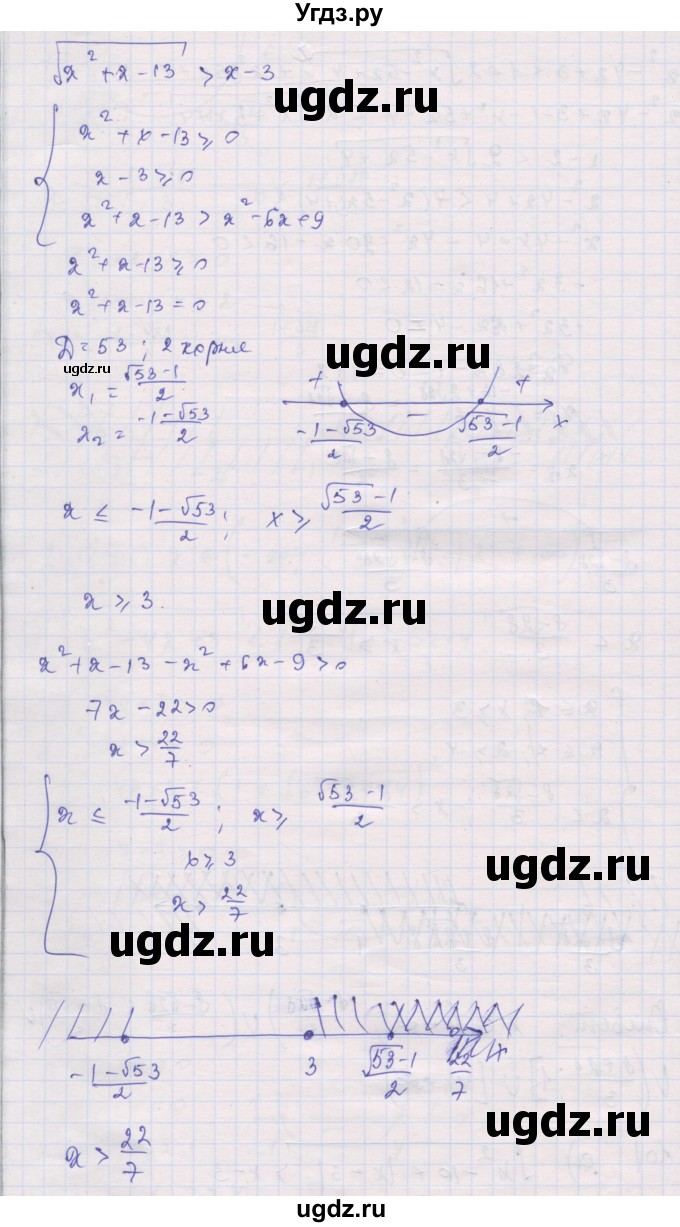 Угдз.ру
√(x² + x − 13) > x − 3
ugdz.ru
x² + x − 13 ⩾ 0
x − 3 ⩾ 0
x² + x − 13 > x² − 6x + 9
x² + x − 13 ⩾ 0
ugdz.ru
x² + x − 13 = 0
Д = 53 ; 2 корня
ugdz.ru
ugdz.ru
x₁ = (√53 − 1)/2
x₂ = (−1 − √53)/2
+ − +
(−1 − √53)/2 (√53 − 1)/2 x
x ≤ (−1 − √53)/2 ; x ⩾ (√53 − 1)/2
x ⩾ 3.
ugdz.ru
x² + x − 13 − x² + 6x − 9 > 0
7x − 22 > 0
x > 22/7
ugdz.ru
x ≤ (−1 − √53)/2 ; x ⩾ (√53 − 1)/2
x ⩾ 3
ugdz.ru
x > 22/7
ugdz.ru
(−1 − √53)/2 3 (√53 − 1)/2 22/7 x
ugdz.ru
x > 22/7
ugdz.ru